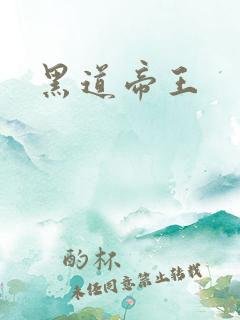 黑道帝王
酌杯
未经同意禁止转载